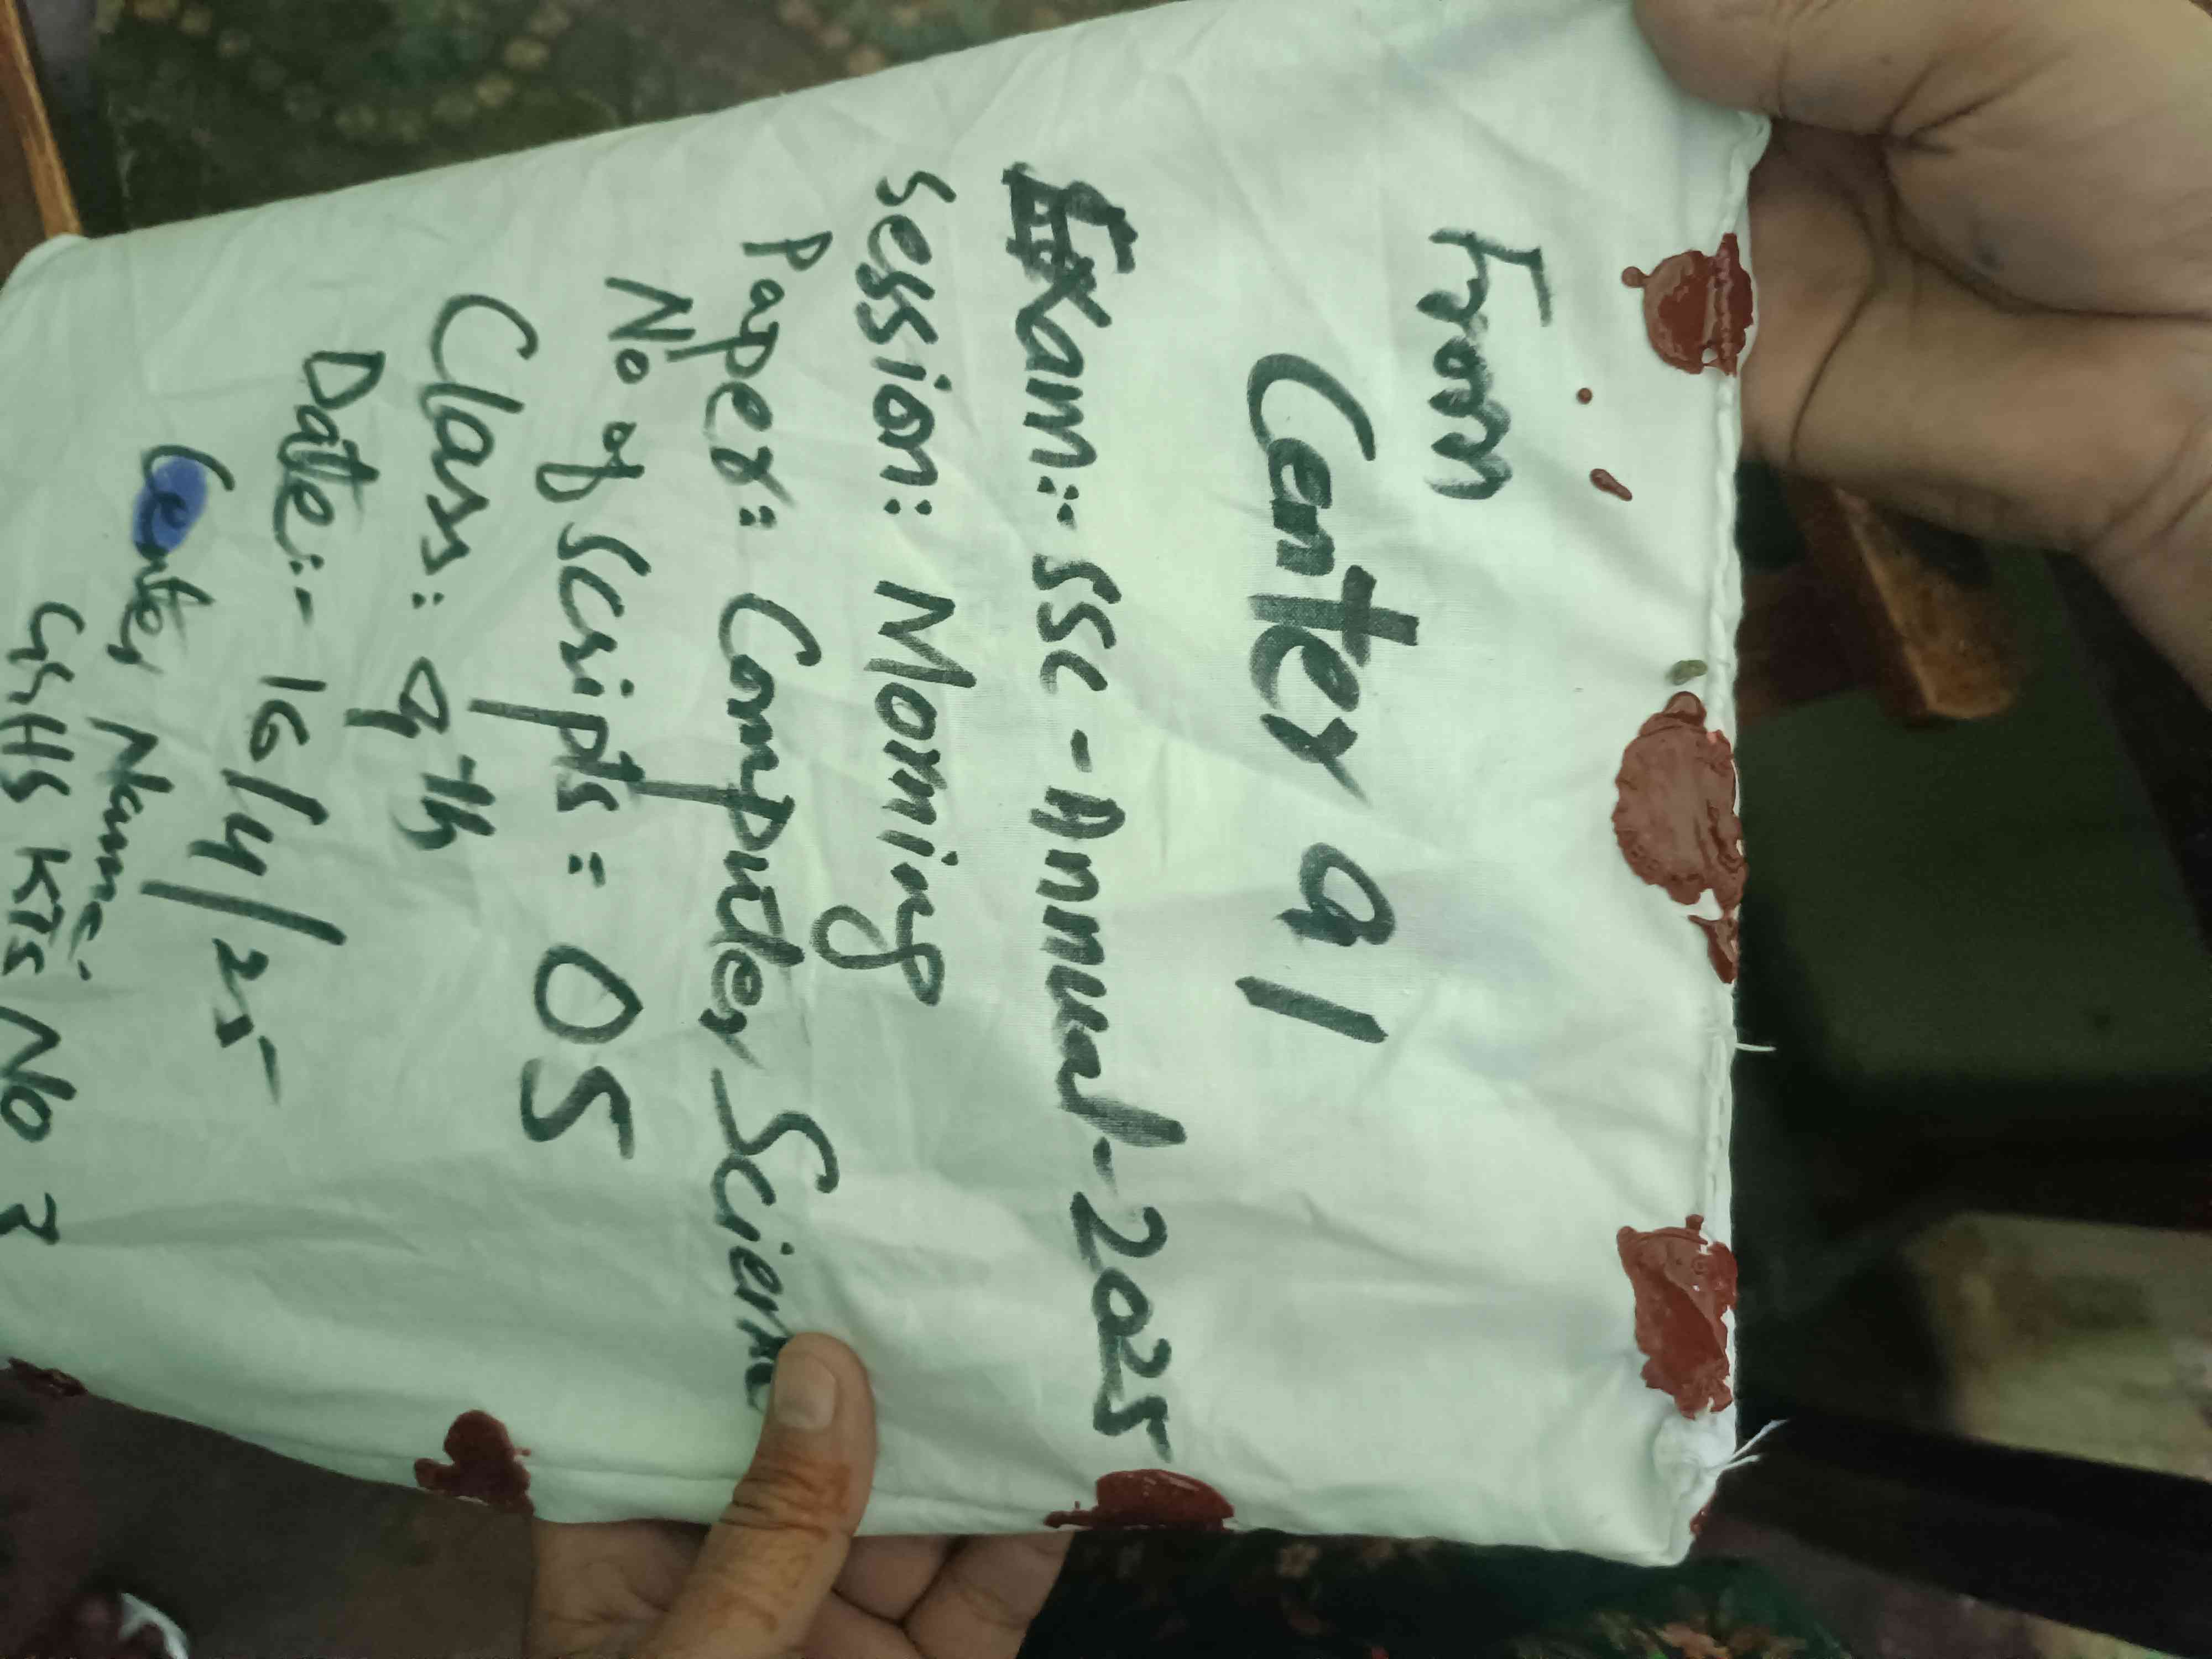 From
Center 91
Exam:- SSC - Annual - 2025
Session: Morning
Paper: Computer Science
No of Scripts = 05
Class: 9th
Date:- 16/4/25
Center Name:
GHHS KTS No 3